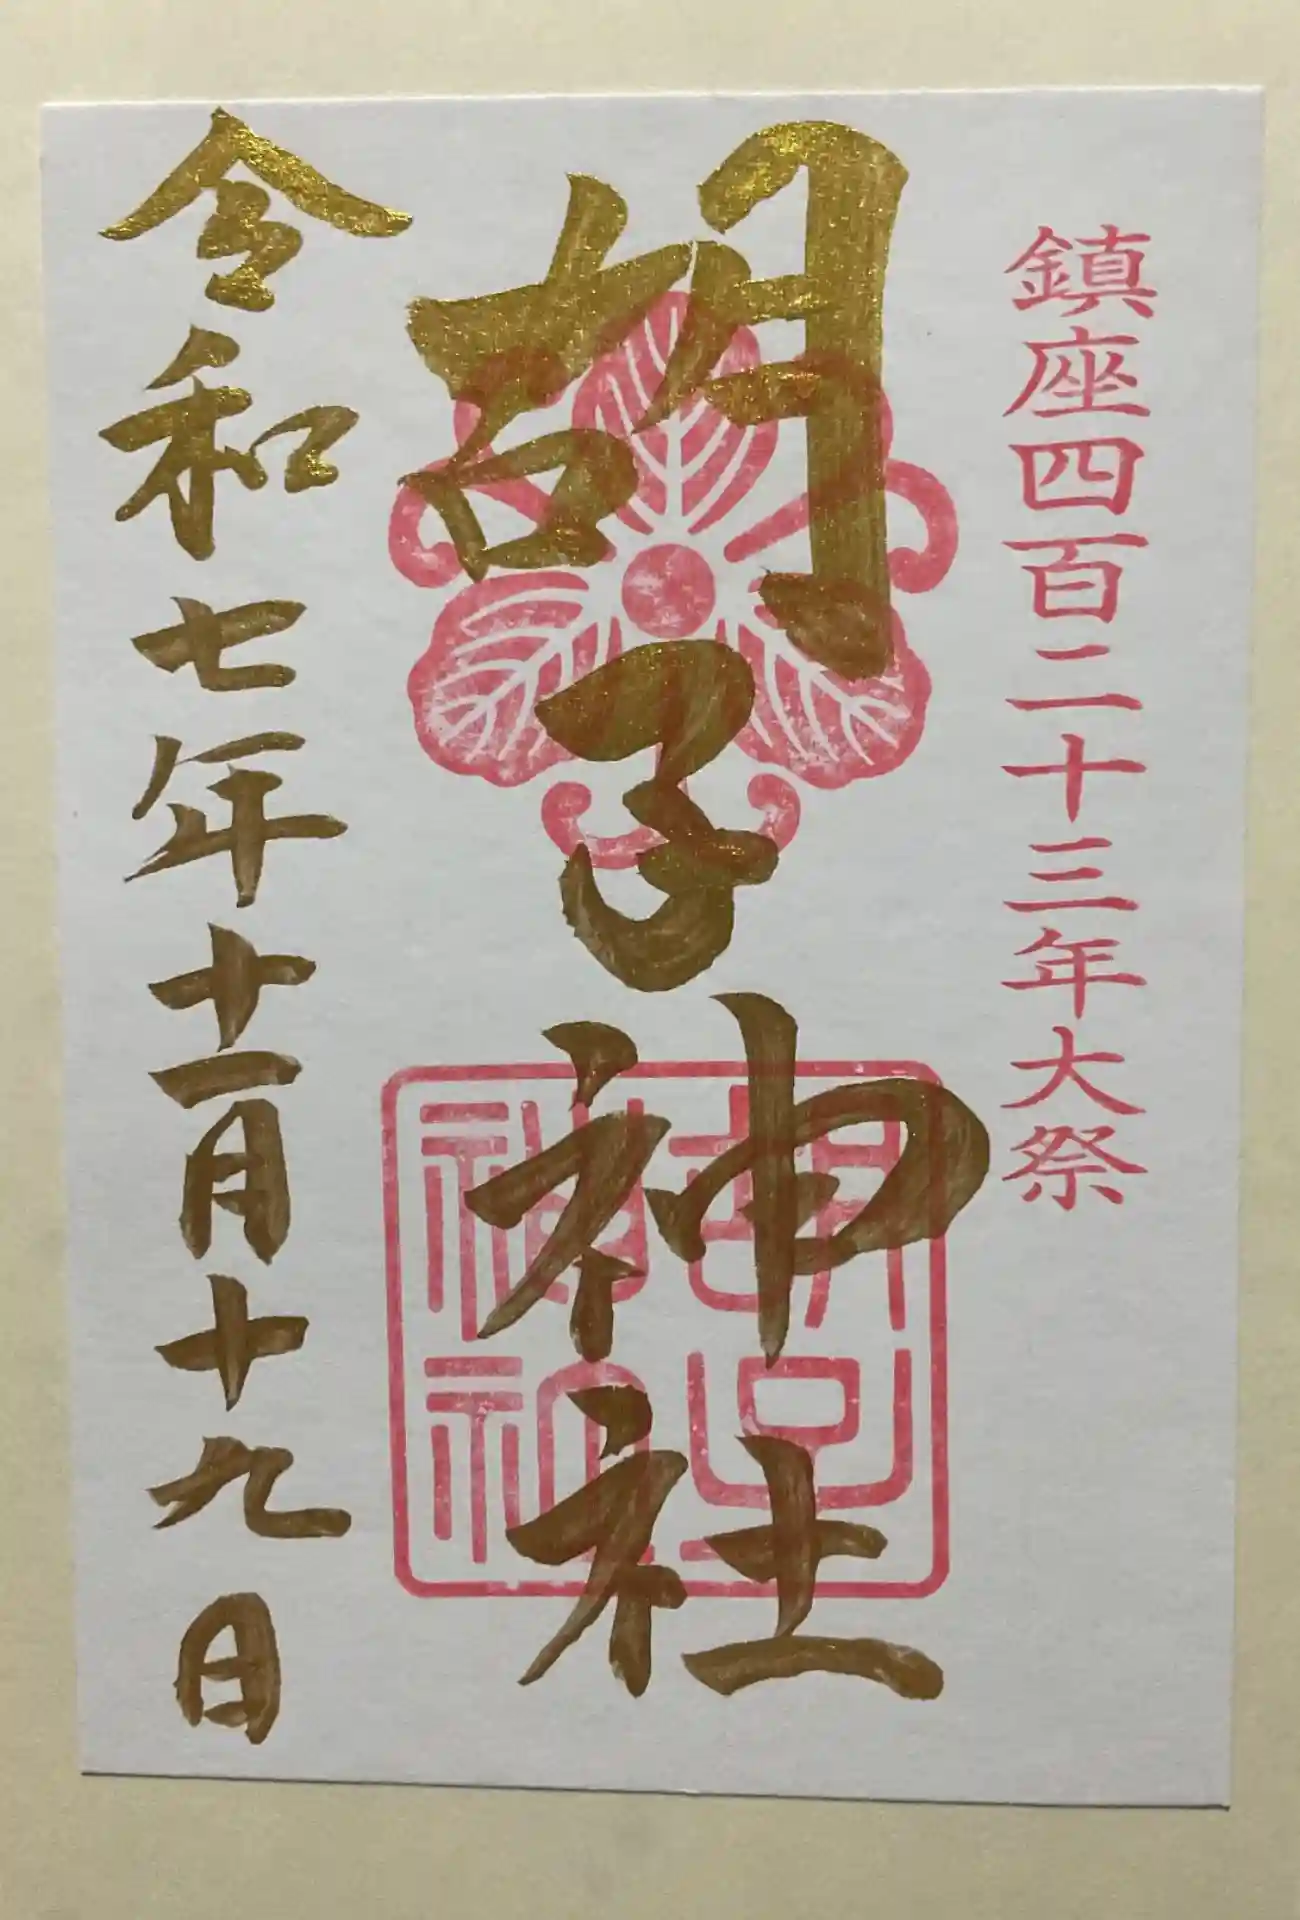 鎮座四百二十三年大祭
胡子神社
胡子神社
令和七年十一月十九日